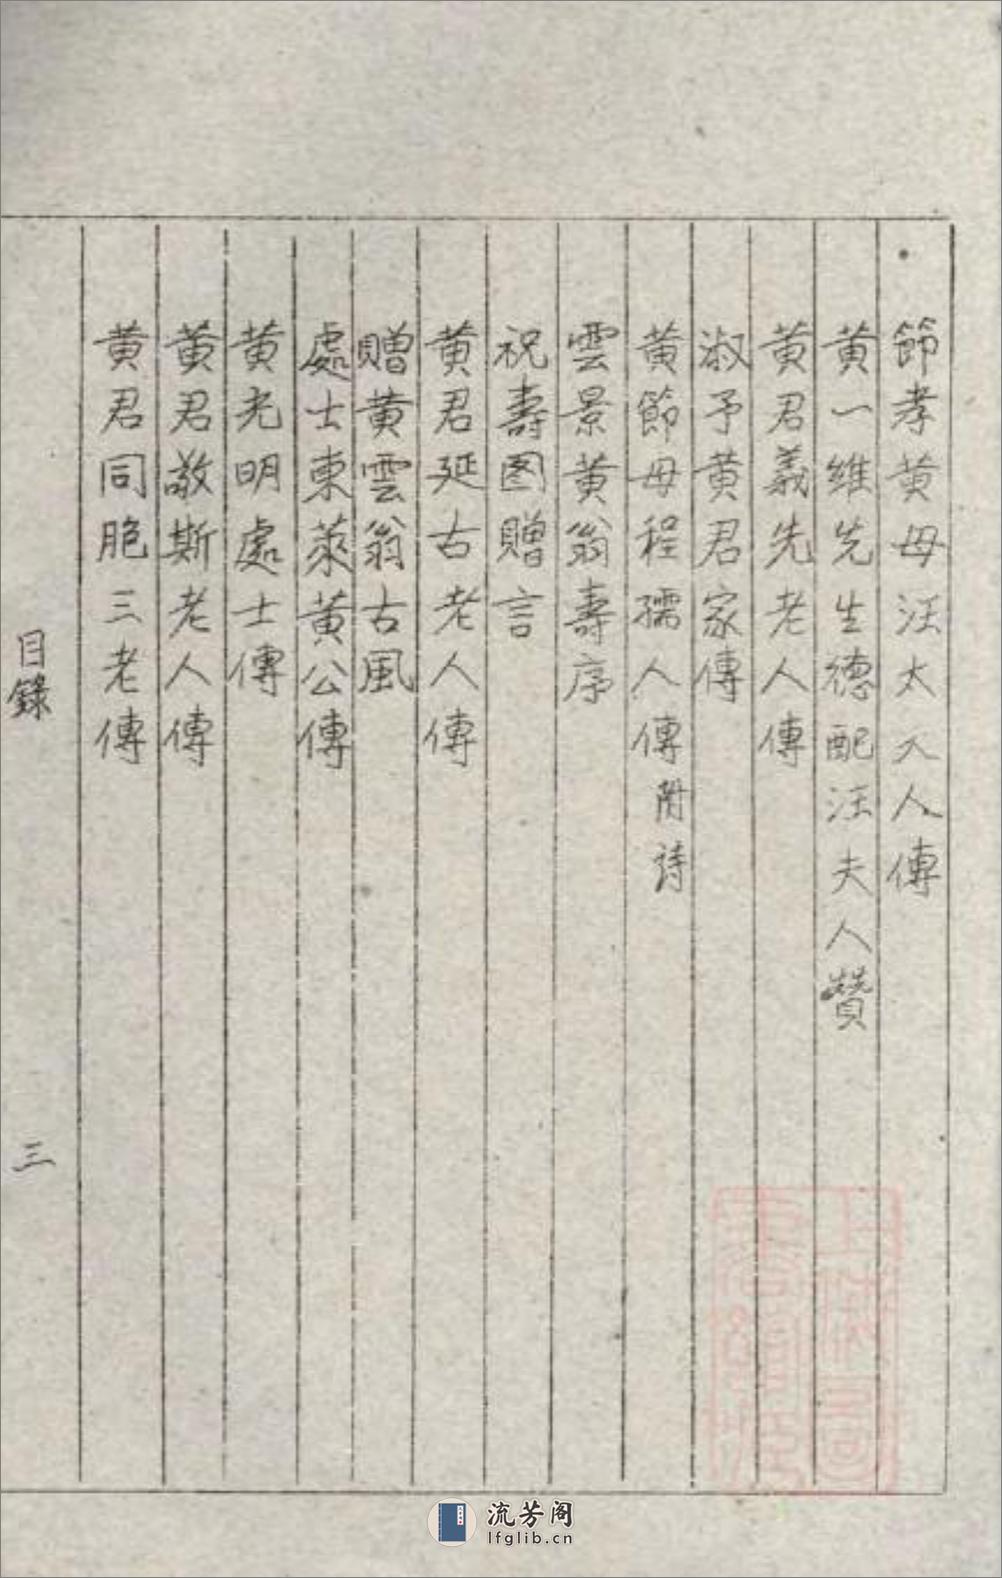 節孝黄母汪太夫人傳
黄一維先生德配汪夫人贊
黄君義先老人傳
淑予黄君家傳
黄節母程孺人傳附诗
雲景黄翁壽序
祝壽图贈言
黄君延古老人傳
贈黄雲翁古風
處士東萊黄公傳
黄光明處士傳
黄君敬斯老人傳
黄君同胞三老傳
目錄
三
流芳阁
lfglib.cn